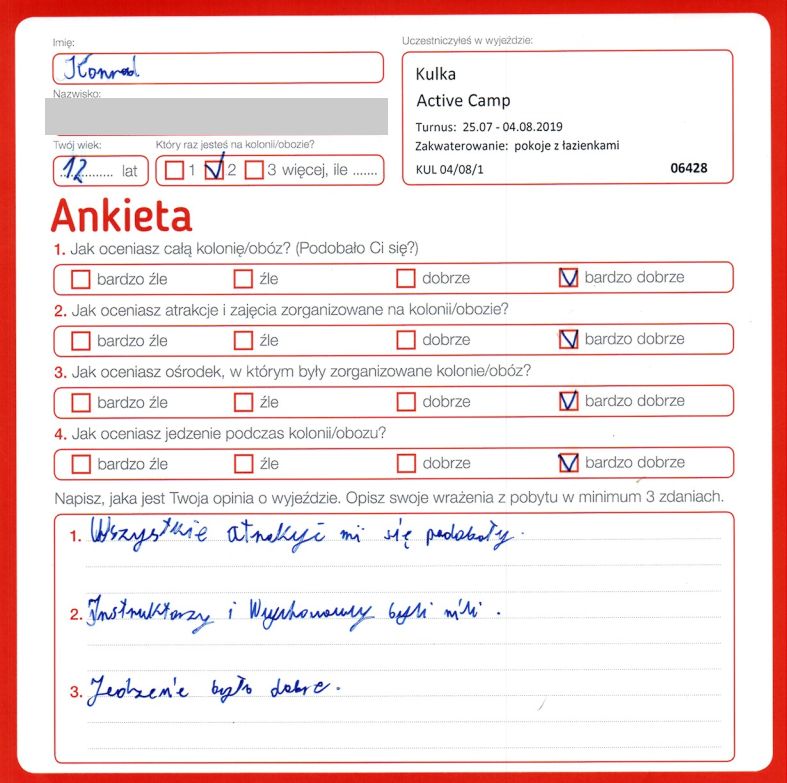 Imię:
Konrad
Uczestniczyłeś w wyjeździe:
Kulka
Active Camp
Turnus: 25.07 - 04.08.2019
Zakwaterowanie: pokoje z łazienkami
KUL 04/08/1 06428
Nazwisko:
Twój wiek: Który raz jesteś na kolonii/obozie?
12 lat 1 2 3 więcej, ile .......
Ankieta
1. Jak oceniasz całą kolonię/obóz? (Podobało Ci się?)
bardzo źle źle dobrze bardzo dobrze
2. Jak oceniasz atrakcje i zajęcia zorganizowane na kolonii/obozie?
bardzo źle źle dobrze bardzo dobrze
3. Jak oceniasz ośrodek, w którym były zorganizowane kolonie/obóz?
bardzo źle źle dobrze bardzo dobrze
4. Jak oceniasz jedzenie podczas kolonii/obozu?
bardzo źle źle dobrze bardzo dobrze
Napisz, jaka jest Twoja opinia o wyjeździe. Opisz swoje wrażenia z pobytu w minimum 3 zdaniach.
1. Wszystkie atrakyje mi się podobały.
2. Instruktorzy i Wychowawcy byli mili.
3. Jedzenie było dobre.